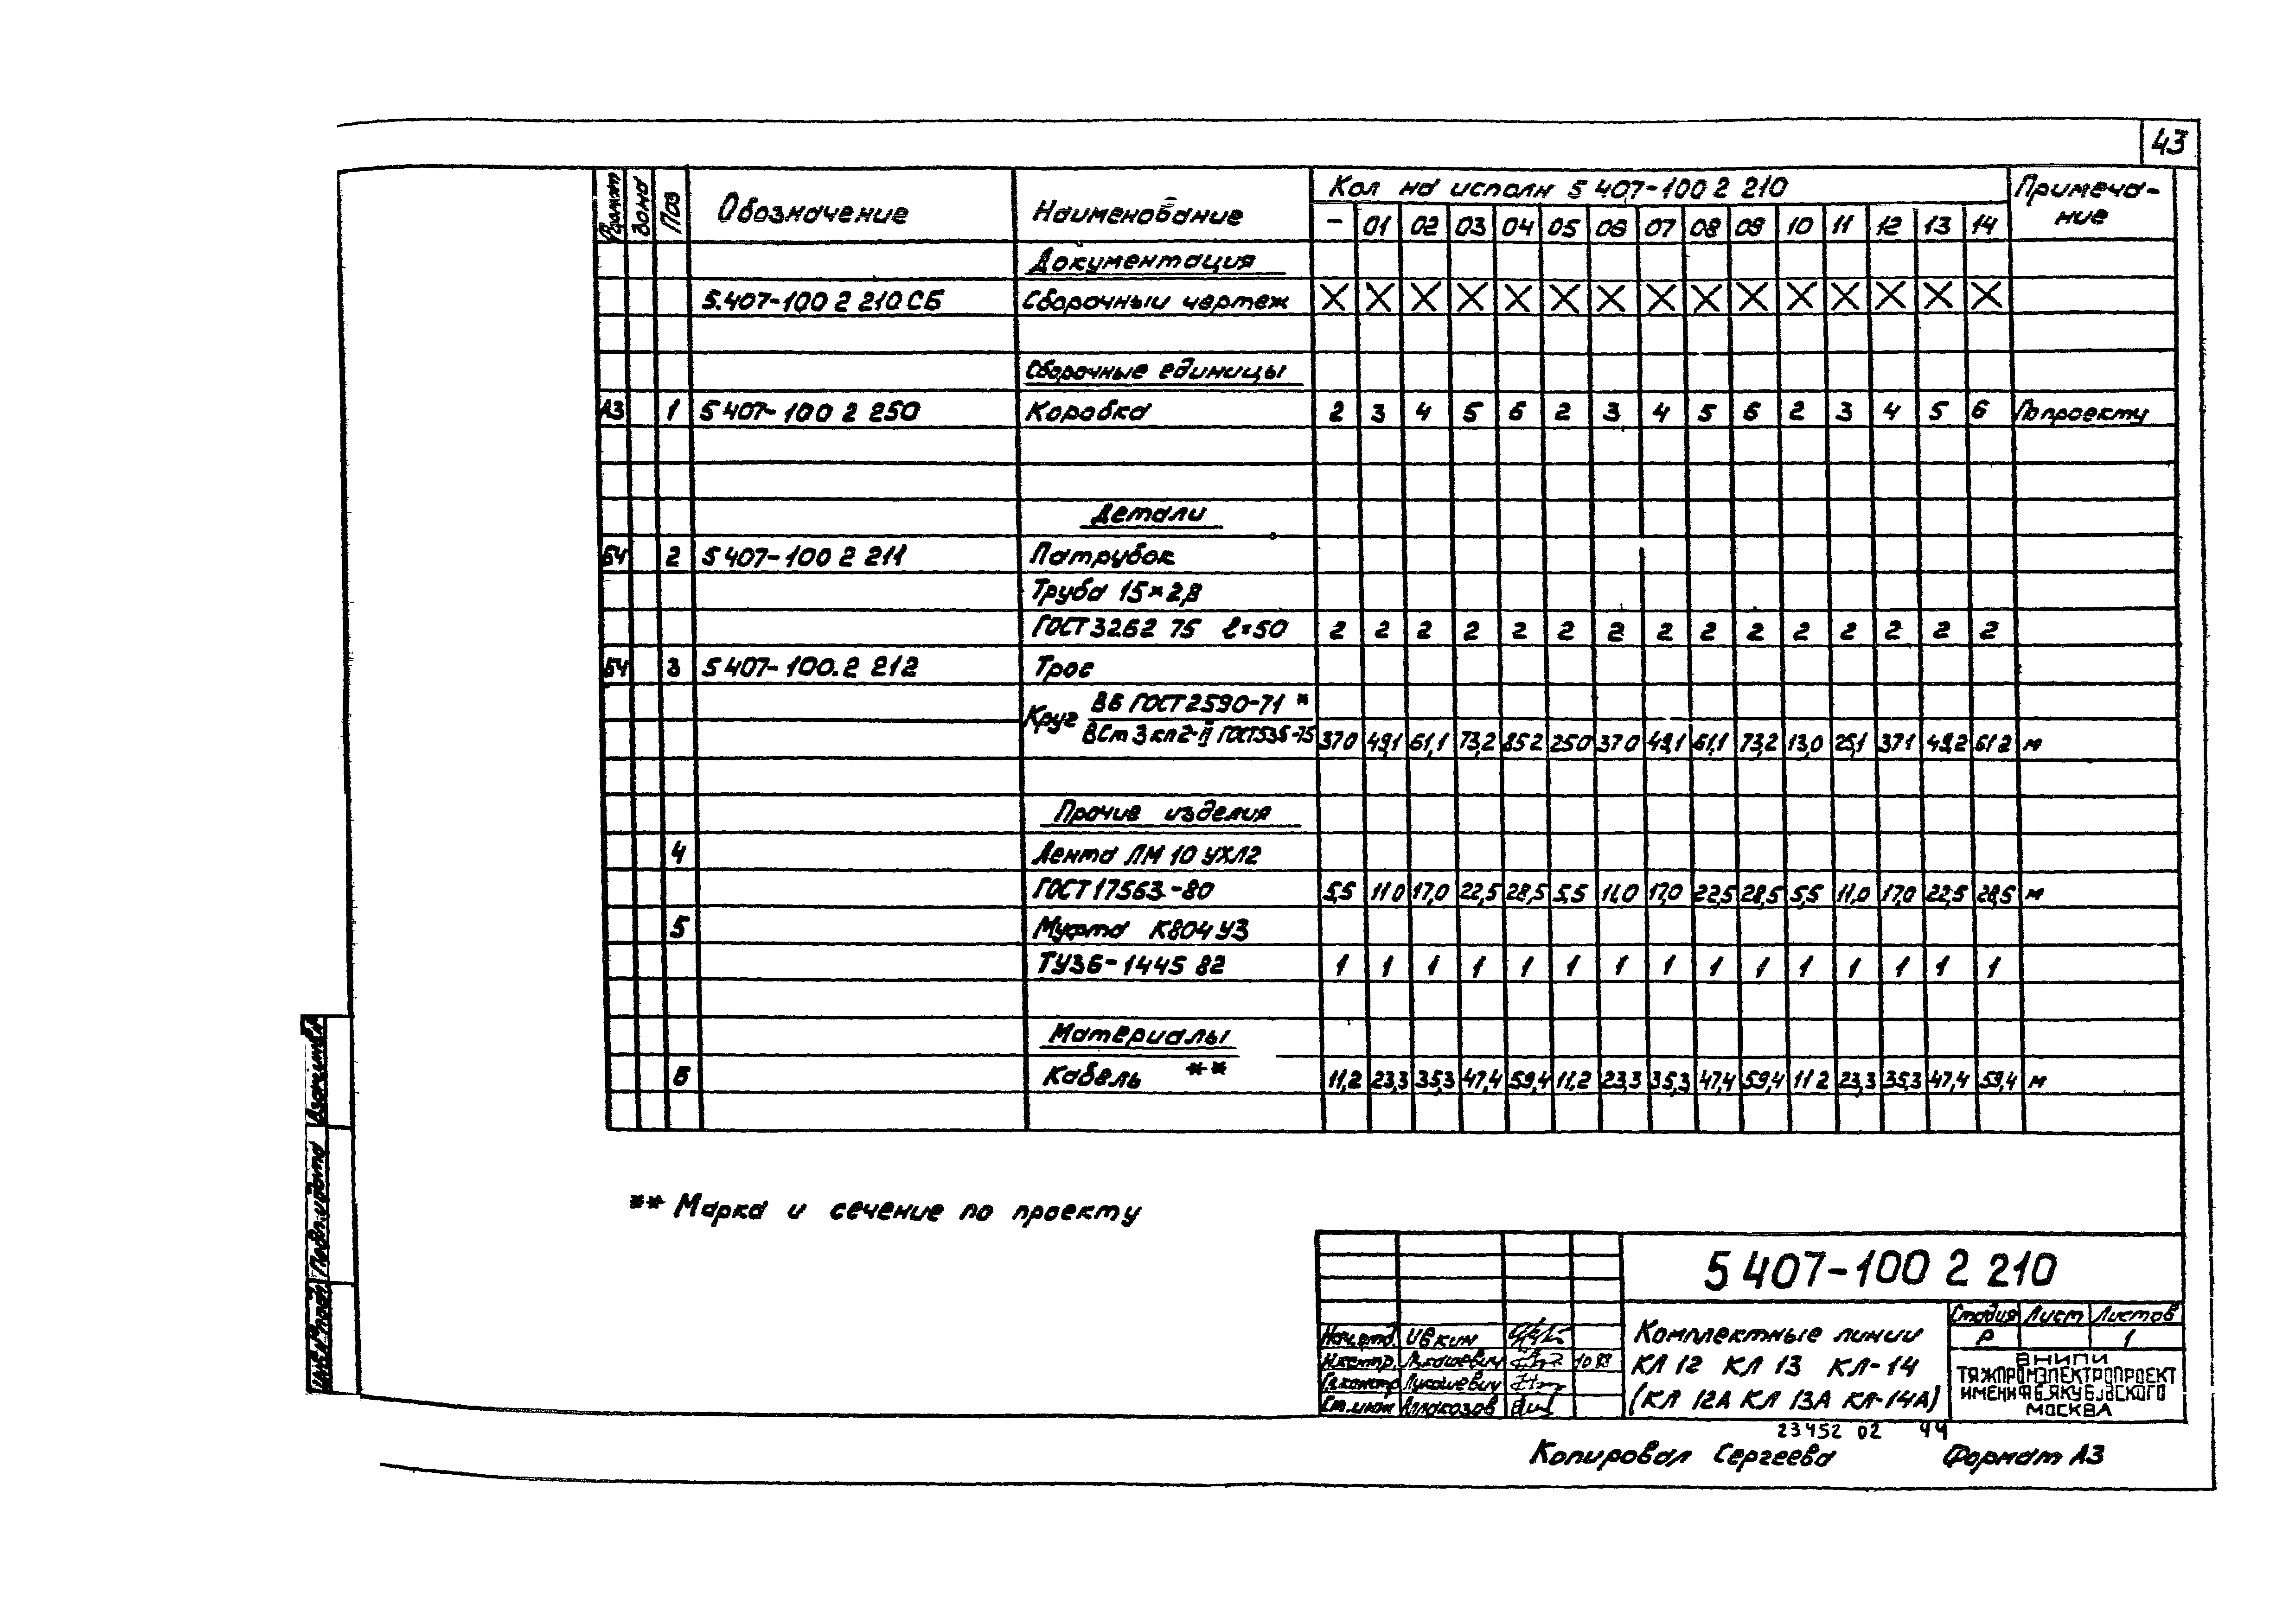 43
Формат Зона Поз Обозначение Наименование Кол на исполн 5 407-100 2 210 Примеча-ние
– 01 02 03 04 05 06 07 08 09 10 11 12 13 14
Документация
5.407-100 2 210 СБ Сборочный чертеж X X X X X X X X X X X X X X X
Сборочные единицы
А3 1 5 407-100 2 250 Коробка 2 3 4 5 6 2 3 4 5 6 2 3 4 5 6 По проекту
Детали
БЧ 2 5 407-100 2 211 Патрубок
Труба 15×2,8
ГОСТ 3262 75 ℓ=50 2 2 2 2 2 2 2 2 2 2 2 2 2 2 2
БЧ 3 5 407-100.2 212 Трос
Круг В6 ГОСТ 2590-71 *
ВСт 3 кп2-II ГОСТ535-75 37 0 49,1 61,1 73,2 85 2 25 0 37 0 49,1 61,1 73,2 13,0 25,1 37 1 49,2 61 2 м
Прочие изделия
4 Лента ЛМ 10 УХЛ2
ГОСТ 17563-80 5,5 11 0 17,0 22,5 28,5 5,5 11,0 17,0 22,5 28,5 5,5 11,0 17,0 22,5 28,5 м
5 Муфта К804 У3
ТУ36-1445 82 1 1 1 1 1 1 1 1 1 1 1 1 1 1 1
Материалы
6 Кабель ** 11,2 23,3 35,3 47,4 59,4 11,2 23,3 35,3 47,4 59,4 11 2 23,3 35,3 47,4 59,4 м
** Марка и сечение по проекту
5 407-100 2 210
Комплектные линии
КЛ 12 КЛ 13 КЛ-14
(КЛ 12А КЛ 13А КЛ-14А)
Стадия Лист Листов
Р 1
ВНИПИ
ТЯЖПРОМЭЛЕКТРОПРОЕКТ
ИМЕНИ Ф Б ЯКУБОВСКОГО
МОСКВА
Нач.отд. Ивкин
Н.контр. Лукашевич 10 89
Гл.констр Лукашевич
Ст.инж Аллакозов
23452 02 44
Копировал Сергеева Формат А3
Взам.инв.№
Подп. и дата
Инв.№ подл